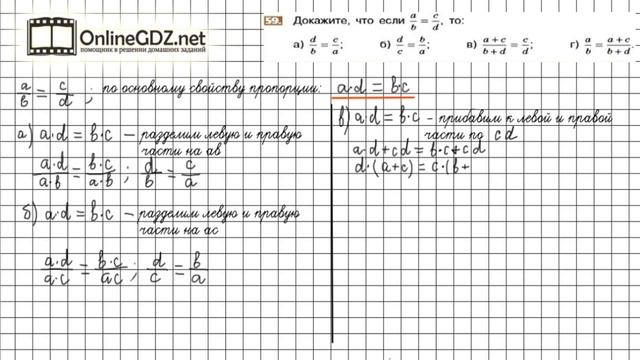 OnlineGDZ.net
помощник в решении домашних заданий
59. Докажите, что если a/b = c/d, то:
а) d/b = c/a; б) d/c = b/a; в) (a+c)/(b+d) = c/d; г) a/b = (a+c)/(b+d).
a/b = c/d ; по основному свойству пропорции: a·d = b·c
а) a·d = b·c – разделим левую и правую
части на ab
(a·d)/(a·b) = (b·c)/(a·b) ; d/b = c/a
б) a·d = b·c – разделим левую и правую
части на ac
(a·d)/(a·c) = (b·c)/(ac) ; d/c = b/a
в) a·d = b·c – прибавим к левой и правой
части по cd
a·d+cd = b·c+cd
d·(a+c) = c·(b+